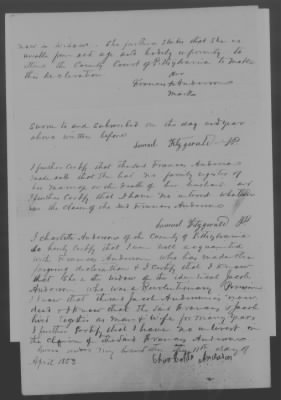 now a widow. She further states that she is
unable from old age and bodily infirmity to
attend the County Court of Pittsylvania to make
this declaration
her
Frances + Anderson
Mark
Sworn to and subscribed on the day and year
above written before
Samuel Fitzgerald JP
I further certify that the said Frances Anderson
made oath that she has no family register of
her marriage or the death of her husband and
I further certify that I have no interest whatever
in the claim of the said Frances Anderson
Samuel Fitzgerald JP
I Anderson of the County of Pittsylvania
do hereby certify that I am well acquainted
with Frances Anderson who has made the
foregoing declaration & I certify that I know
that she is the widow of the identical Jacob
Anderson who was a Revolutionary Pensioner
I know that the said Jacob Anderson is now
dead & I know that the said Frances & Jacob
lived together as man & wife for many years
I further certify that I have no interest in
the claim of the said Frances Anderson
Given under my hand this the 11th day of
April 1853
Anderson